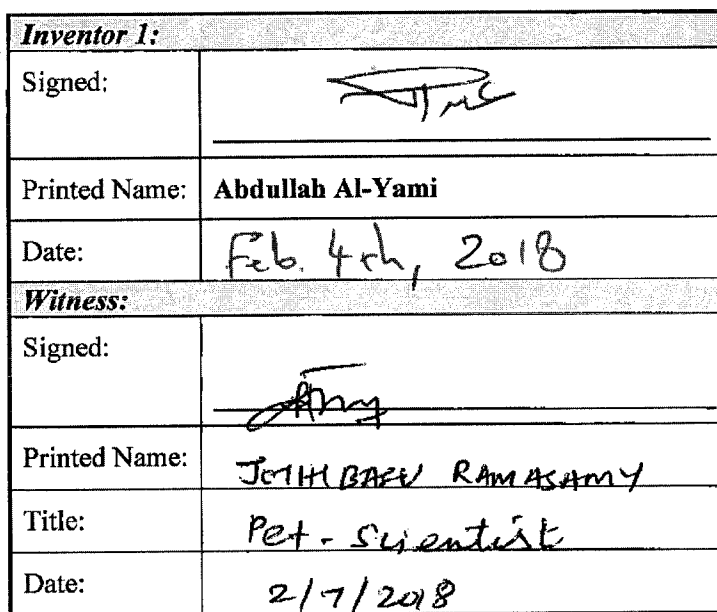 Inventor 1:
Signed:
Printed Name: Abdullah Al-Yami
Date: Feb. 4th, 2018
Witness:
Signed:
Printed Name: RAMASAMY
Title: Pet - Scientist
Date: 2/7/2018